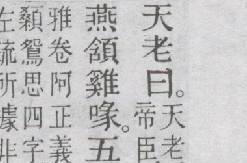 天老曰。
天老
帝臣
燕頷雞喙。五
雅卷阿正義
顙鴛思四字
左疏所據非